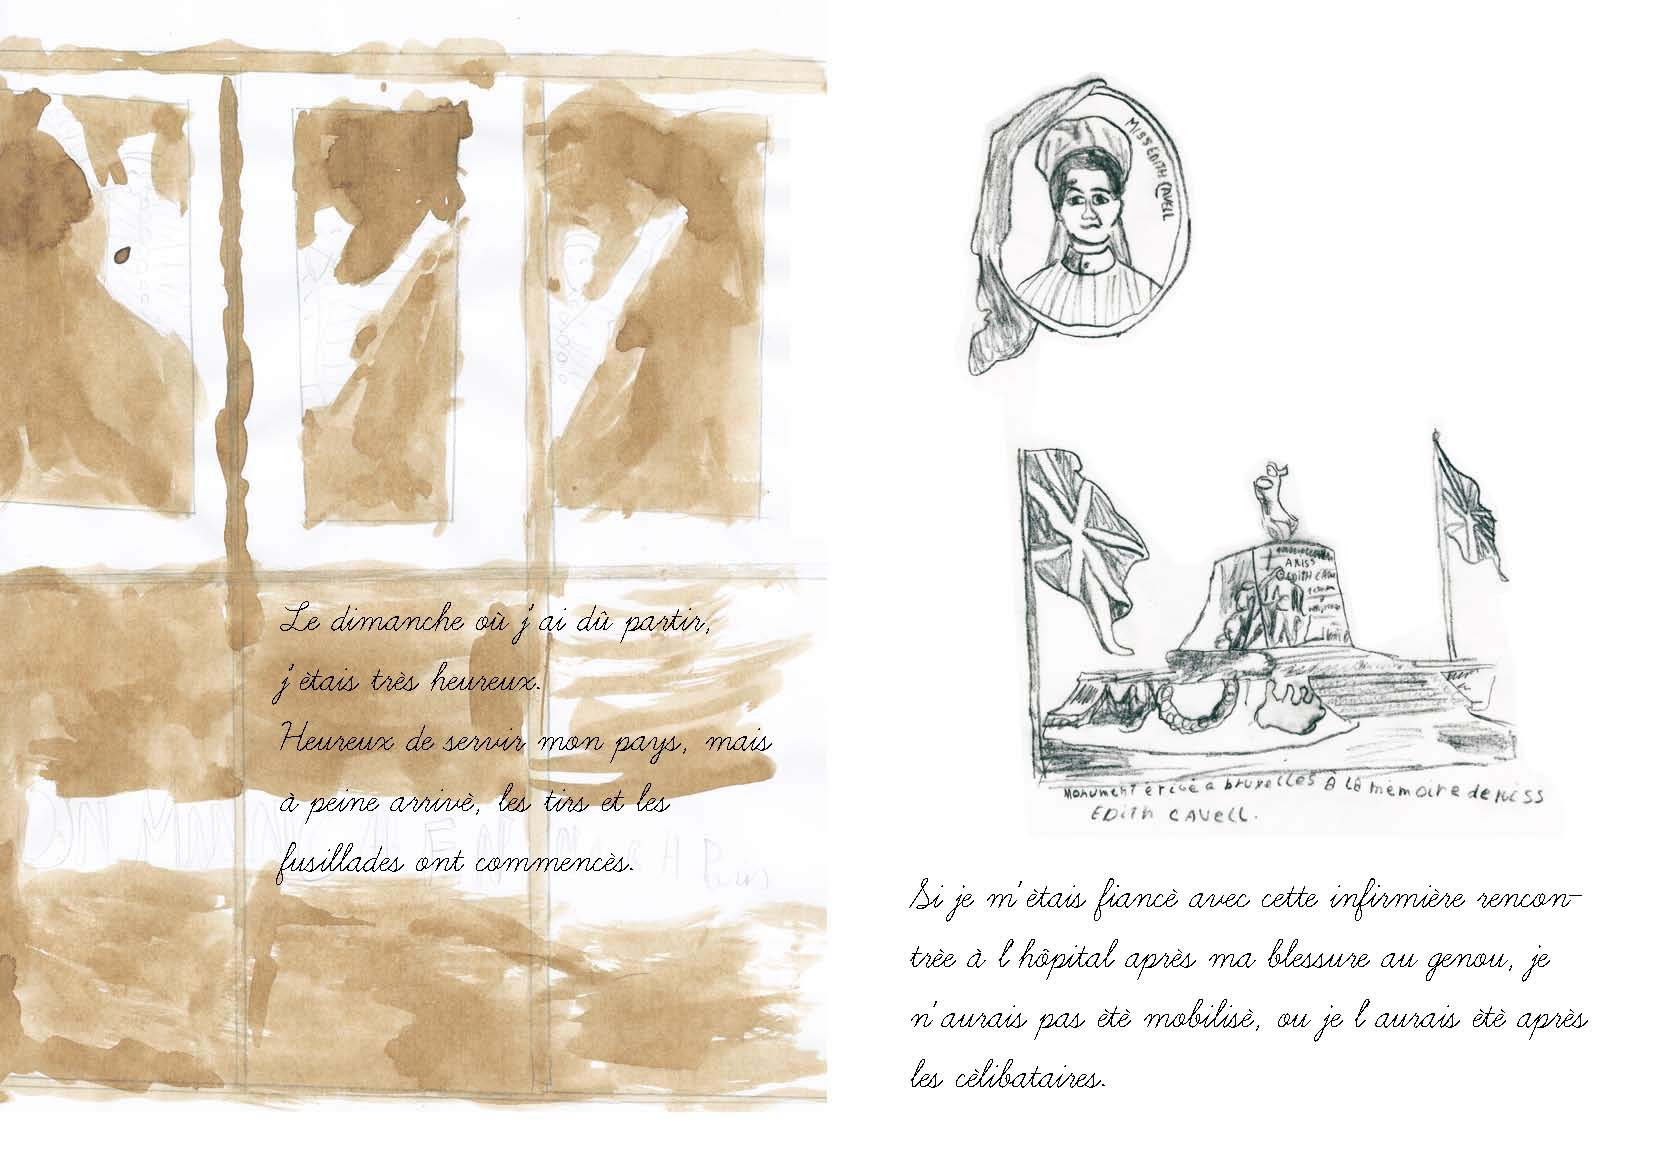 Le dimanche où j'ai dû partir,
j'ètais très heureux.
Heureux de servir mon pays, mais
à peine arrivè, les tirs et les
fusillades ont commencès.
MISS EDITH CAVELL
A MISS
EDITH CAVELL
Monument érigé a bruxelles À LA mémoire de MISS
EDITH CAVELL.
Si je m'ètais fiancè avec cette infirmière rencon-
trèe à l'hôpital après ma blessure au genou, je
n'aurais pas ètè mobilisè, ou je l'aurais ètè après
les cèlibataires.